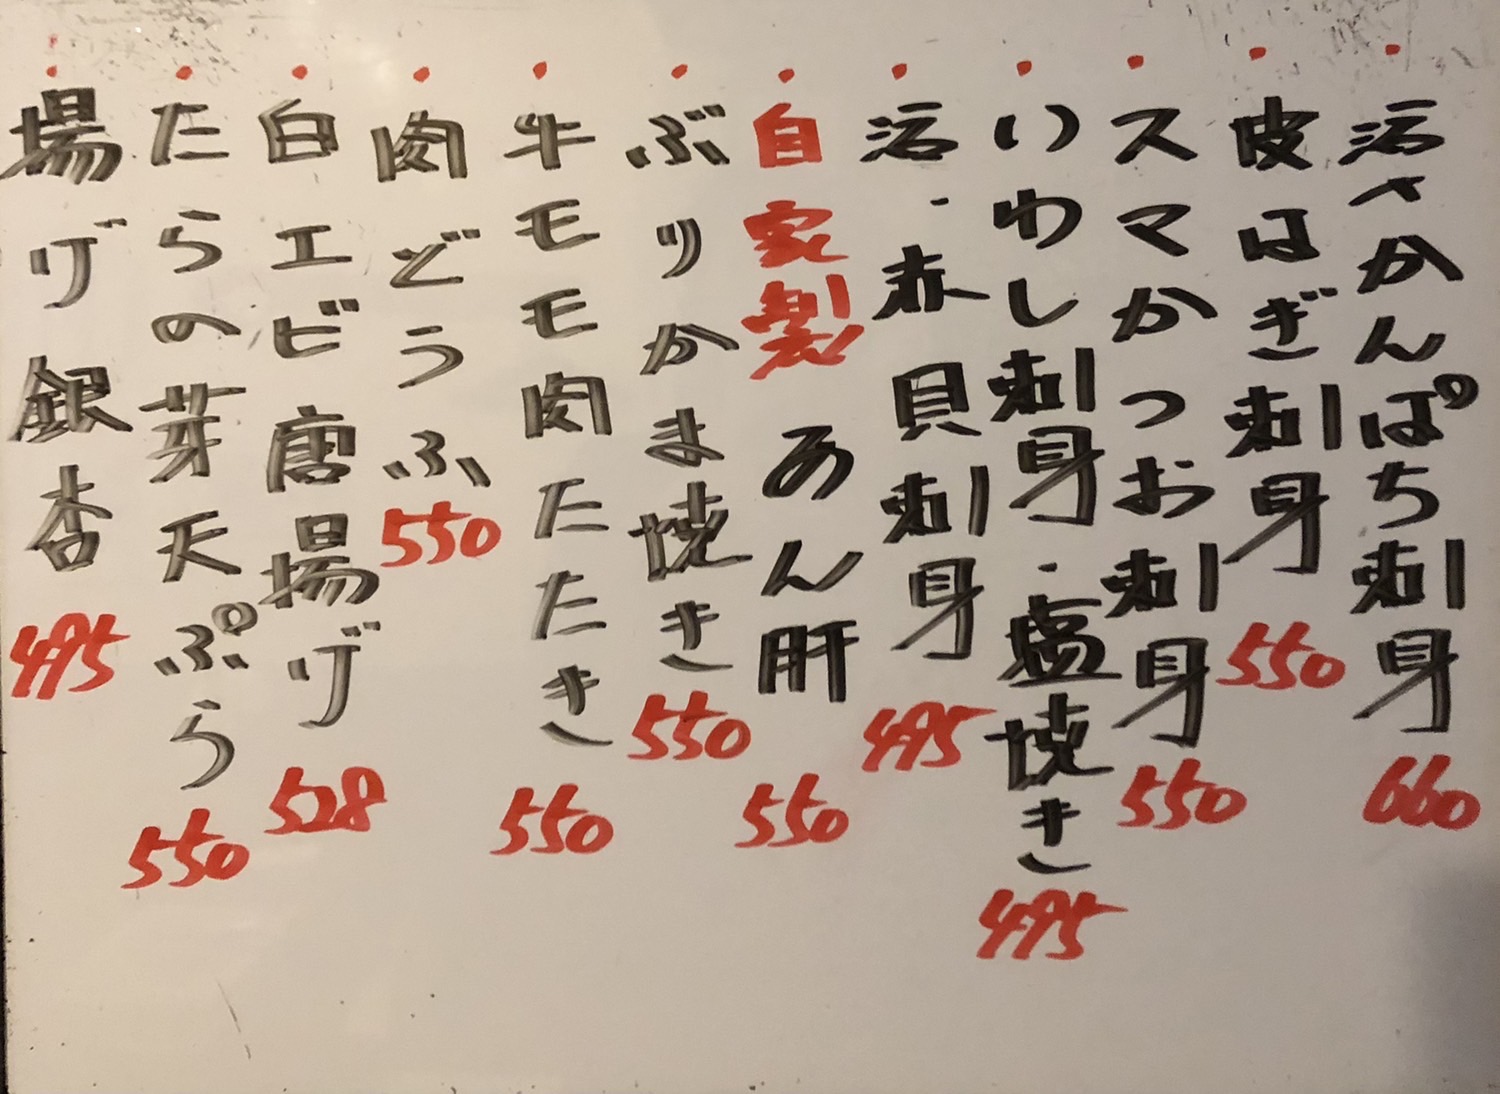 ・活〆かんぱち刺身 660
・皮はぎ刺身 550
・スマかつお刺身 550
・いわし刺身・塩焼き 495
・活・赤貝刺身 495
・自家製 あん肝 550
・ぶりかま焼き 550
・牛モモ肉たたき 550
・肉どうふ 550
・白エビ唐揚げ 528
・たらの芽天ぷら 550
・揚げ銀杏 495